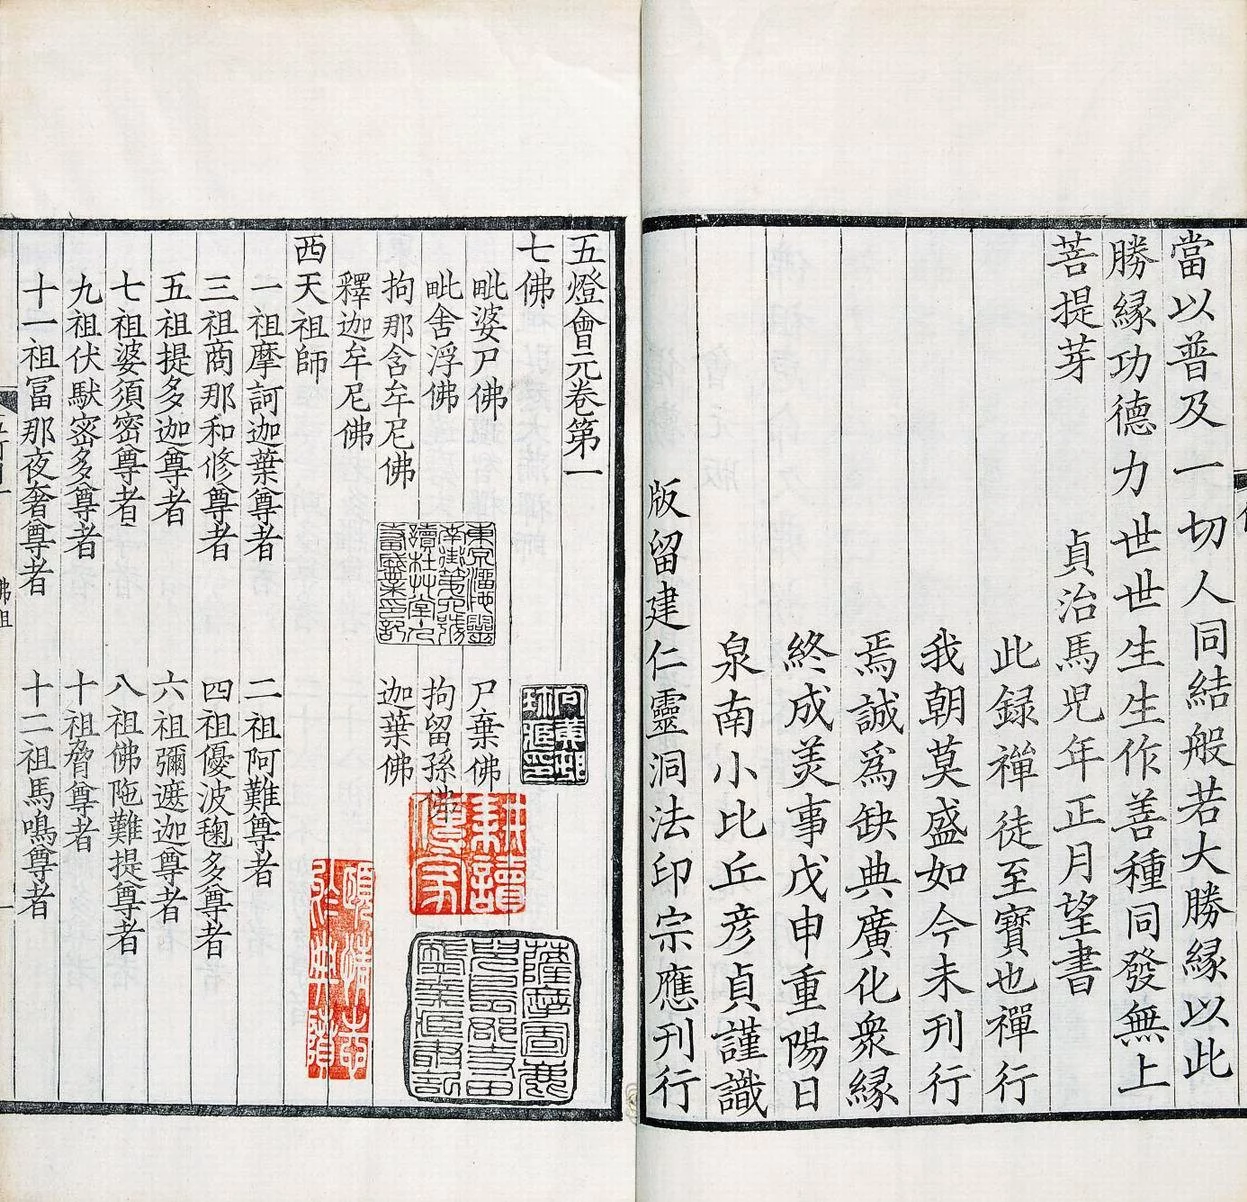 當以普及一切人同結般若大勝緣以此
勝緣功德力世世生生作善種同發無上
菩提芽
貞治馬兒年正月望書
此録禪徒至寶也禪行
我朝莫盛如今未刊行
焉誠為缺典廣化衆緣
終成美事戊申重陽日
泉南小比丘彦貞謹識
版留建仁靈洞法印宗應刊行
五燈會元卷第一
七佛
毗婆尸佛 尸棄佛
毗舍浮佛 拘留孫佛
拘那含牟尼佛 迦葉佛
釋迦牟尼佛
西天祖師
一祖摩訶迦葉尊者 二祖阿難尊者
三祖商那和修尊者 四祖優波毱多尊者
五祖提多迦尊者 六祖彌遮迦尊者
七祖婆須密尊者 八祖佛陁難提尊者
九祖伏馱密多尊者 十祖脅尊者
十一祖冨那夜奢尊者 十二祖馬鳴尊者
佛祖